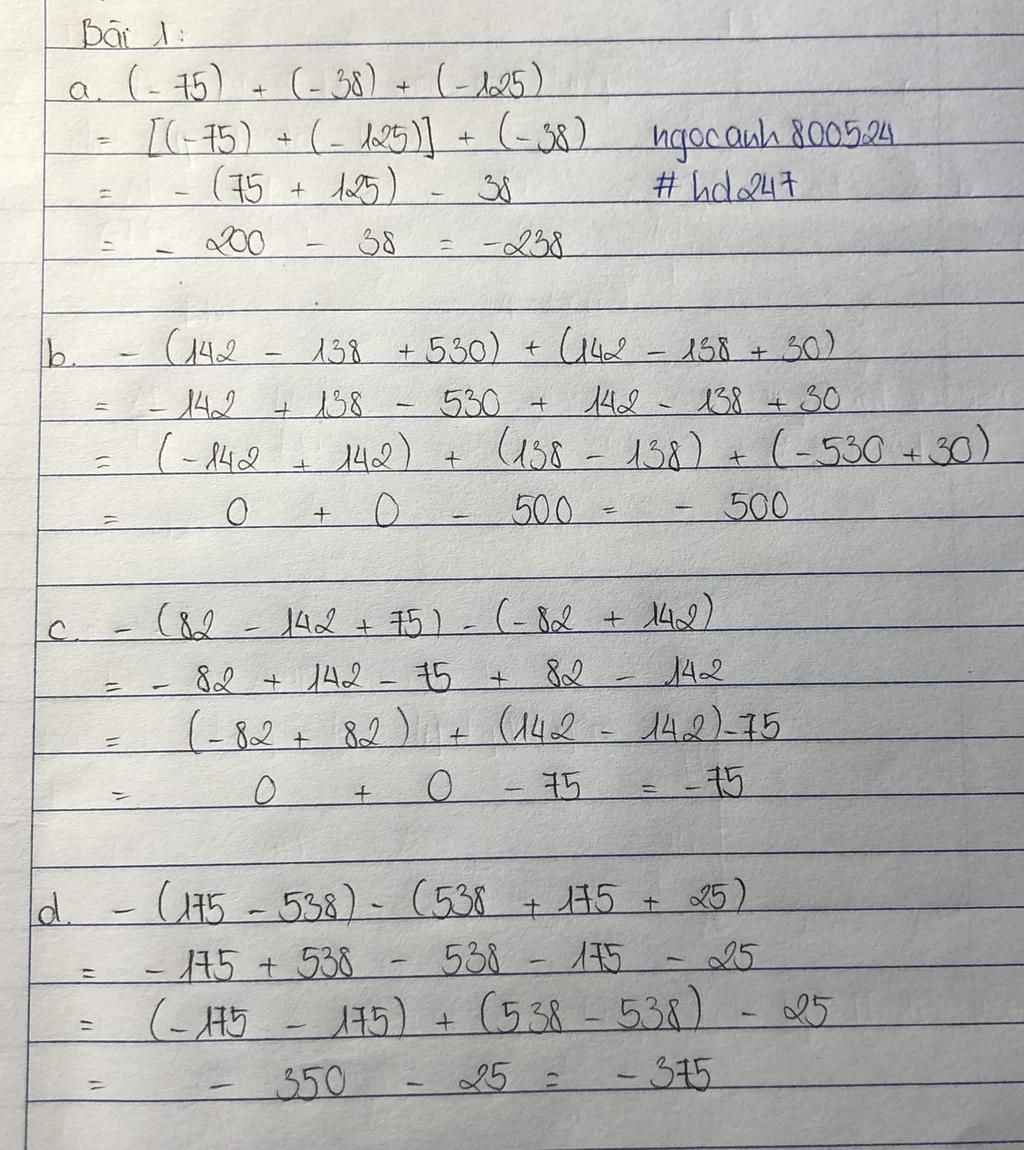 Bài 1:
a. (-75) + (-38) + (-125)
= [(-75) + (-125)] + (-38) ngocanh800524
= -(75 + 125) - 38 #hd247
= - 200 - 38 = -238
b. - (142 - 138 + 530) + (142 - 138 + 30)
= - 142 + 138 - 530 + 142 - 138 + 30
= (-142 + 142) + (138 - 138) + (-530 + 30)
= 0 + 0 - 500 = - 500
c. - (82 - 142 + 75) - (-82 + 142)
= - 82 + 142 - 75 + 82 - 142
= (-82 + 82) + (142 - 142) - 75
= 0 + 0 - 75 = -75
d. - (175 - 538) - (538 + 175 + 25)
= - 175 + 538 - 538 - 175 - 25
= (-175 - 175) + (538 - 538) - 25
= - 350 - 25 = - 375